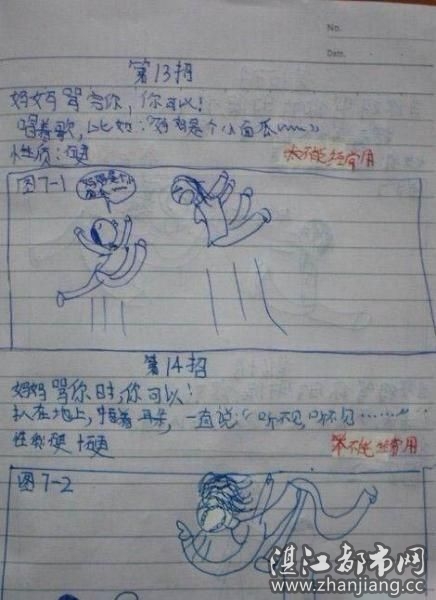 No.
Date.
第13招
妈妈骂完你,你可以!
唱着歌,比如:"妈妈是个小面瓜~~~"
性质:硬
不能经常用
图7-1
妈妈是个小面瓜~~~
第14招
妈妈骂你时,你可以!
趴在地上,捂着耳朵,一直说"听不见,听不见……"
性质:硬
不能经常用
图7-2
湛江都市网
www.zhanjiang.cc